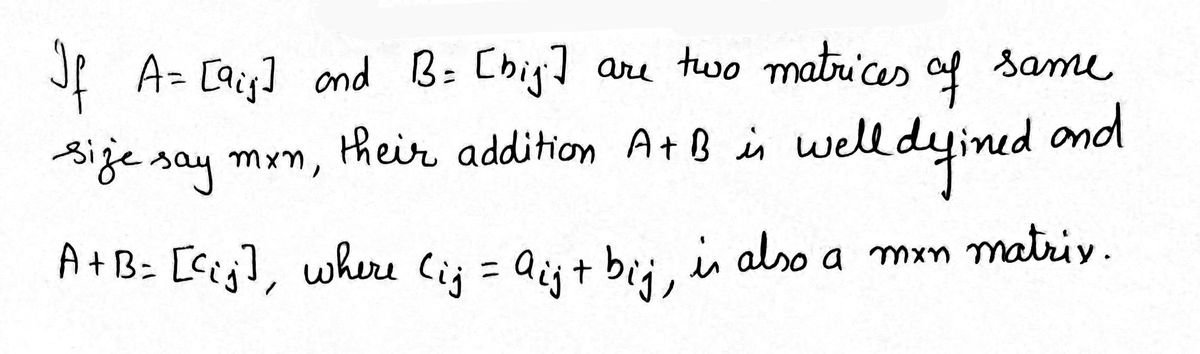 If A = [aij] and B = [bij] are two matrices of same
size say m×n, their addition A+B is well defined and
A+B = [cij], where cij = aij + bij, is also a m×n matrix.